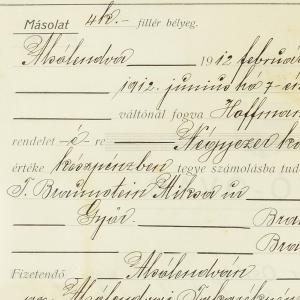 Másolat 4k.- fillér bélyeg.
Alsólendva 1912 február
1912. junius hó 7-én
váltónál fogva Hoffmann
rendelet -é- re Négyezer ko
értéke készpénzben tegye számolásba tud
T. Braunstein Miksa úr
Győr. Brau
Brau
Fizetendő Alsólendván
az Alsólendvai Takarékpén